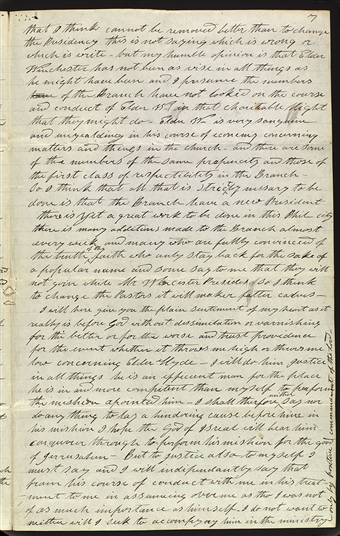 7
that I think cannot be removed better than to change
the Presidency this is not saying which is wrong or
which is write - but my humble opinion is that Elder
Winchester has not ben as wise in all things as
he might have ben and I presume the members
of the Branch have not looked on the course
and conduct of Elder W in that charitable light
that they might do - Elder W is very sanguine
and unyealding in his course of economy concerning
matters and things in the church - and there are some
of the members of the same propencity and those of
the first class of respectibility in the Branch -
So I think that all that is strictly nessary to be
done is that the Branch have a new President
there is yet a great work to be done in this Phil. city
there is many additions made to the Branch almost
every week and many who are fully convinced of
the truth of the faith who only stay back for the sake of
a popular name and some say to me that they will
not join while Mr Winchester Presides so I think
to change the Pastors it will make fatter calves -
I will here give you the plain sentiment of my heart as it
really is before God without dessimulation or varnishing
for the better or for the worse and trust providence
for the event whether it throws me high or throws me
low concerning Elder Hyde - I will do him justice
in all things he is an efficient man for the place
he is in and more competent than myself to perform
the mission apointed him - I shall therefore neither say nor
do any thing to lay a hindering cause before him in
his mission I hope the God of Isreal will bear him
conqueror through to perform his mission for the good
of Jerrusalem - But to justice also to myself I
must say and I will independantly say that
from his course of conduct with me in his treat-
ment to me in assumeing over me as tho I was not
of as much importance as himself I do not want to
neither will I seek to accompany him in the ministry
only by positive commandment of the Lord